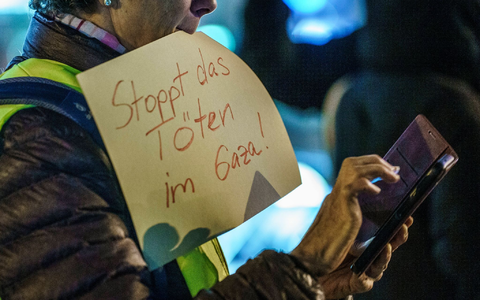 Stoppt das
Töten
im Gaza!